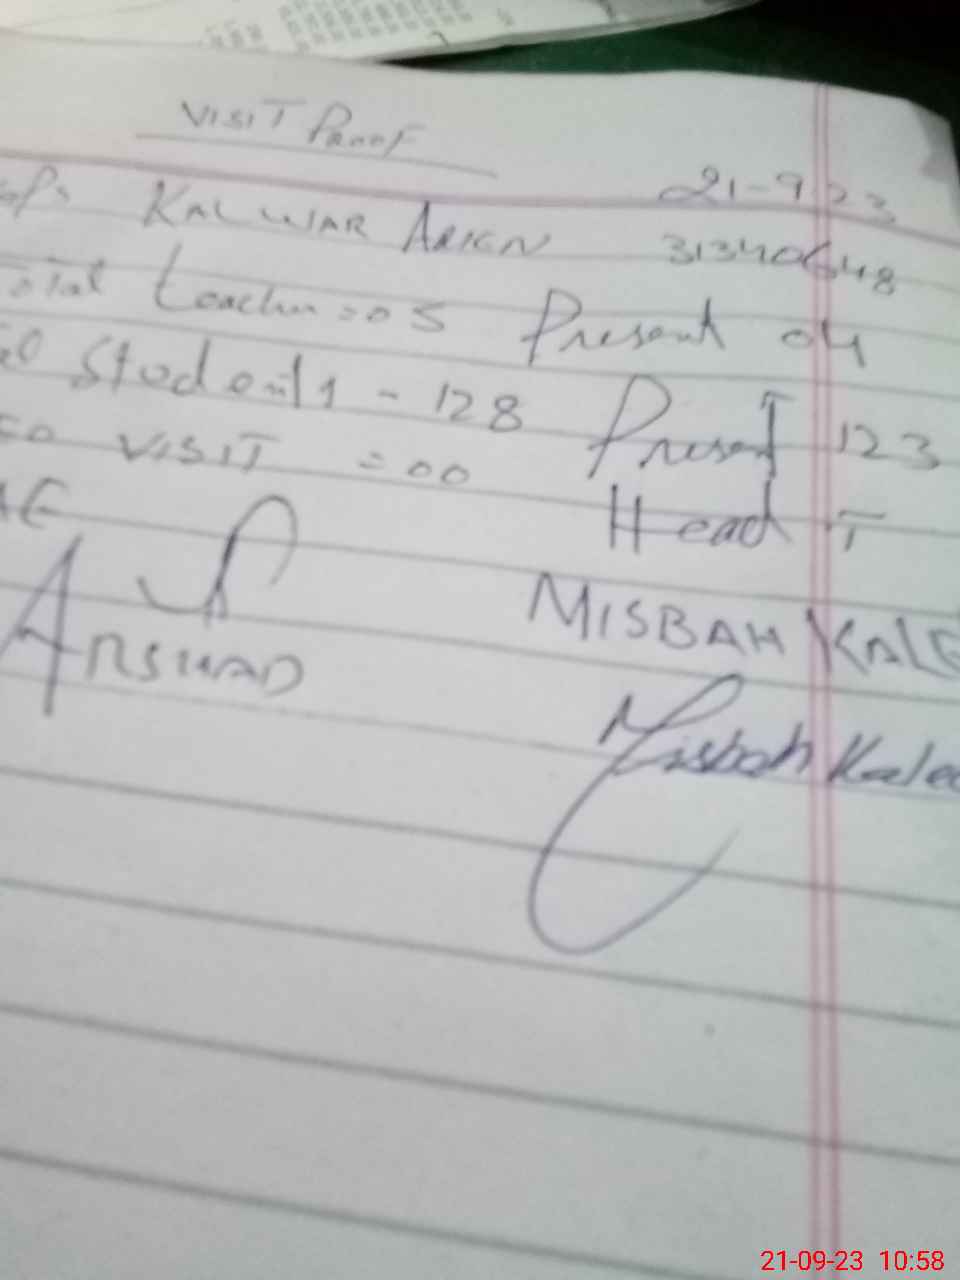 VISIT Proof
21-9-23
GPS KALWAR ARIEN 31340648
Total teacher = 05 Present 04
Students - 128 Present 123
VISIT = 00
Head T
ARSHAD
MISBAH KALE
Misbah Kalee
21-09-23 10:58